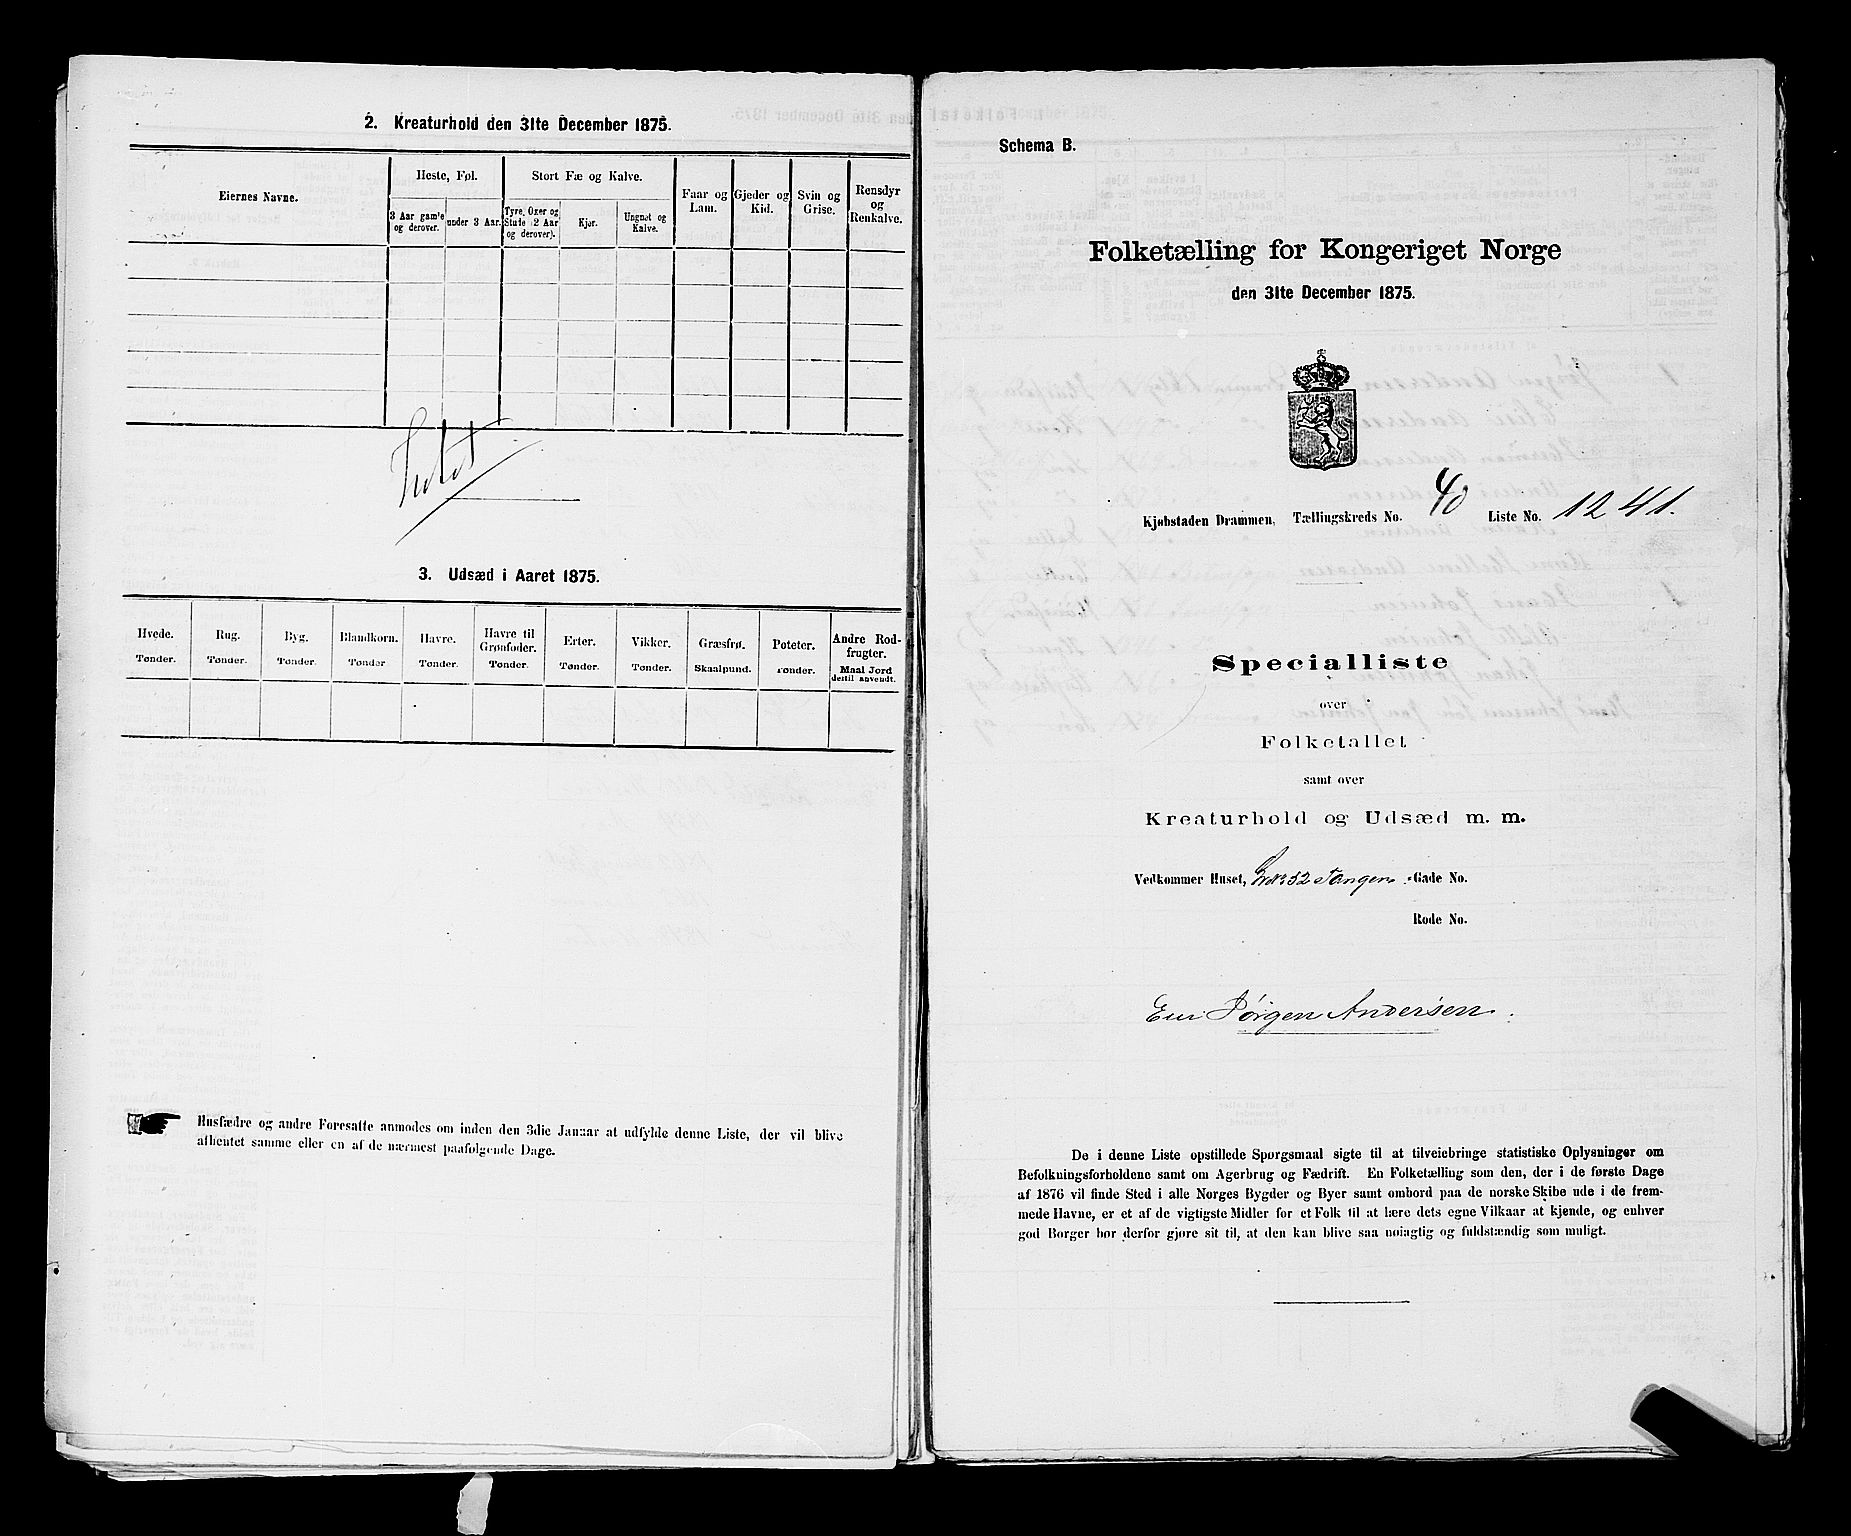 2. Kreaturhold den 31te December 1875.
Eiernes Navne.
Heste, Føl.
3 Aar gamle og derover.
under 3 Aar.
Stort Fæ og Kalve.
Tyre, Oxer og Stude (2 Aar og derover).
Kjør.
Ungnøt og Kalve.
Faar og Lam.
Gjeder og Kid.
Svin og Grise.
Rensdyr og Renkalve.
Intet
3. Udsæd i Aaret 1875.
Hvede. Tønder.
Rug. Tønder.
Byg. Tønder.
Blandkorn. Tønder
Havre. Tønder.
Havre til Grønfoder. Tønder.
Erter. Tønder.
Vikker. Tønder.
Græsfrø. Skaalpund.
Poteter. Tønder.
Andre Rodfrugter. Maal Jord dertil anvendt.
Husfædre og andre Foresatte anmodes om inden den 3die Januar at udfylde denne Liste, der vil blive
afhentet samme eller en af de nærmest paafølgende Dage.
Schema B.
Folketælling for Kongeriget Norge
den 31te December 1875.
Kjøbstaden Drammen, Tællingskreds No. 40 Liste No. 1241.
Specialliste
over
Folketallet
samt over
Kreaturhold og Udsæd m. m.
Vedkommer Huset, 52 Tangen Gade No.
Rode No.
Eier Jörgen Andersen.
De i denne Liste opstillede Spørgsmaal sigte til at tilveiebringe statistiske Oplysninger om
Befolkningsforholdene samt om Agerbrug og Fædrift. En Folketælling som den, der i de første Dage
af 1876 vil finde Sted i alle Norges Bygder og Byer samt ombord paa de norske Skibe ude i de frem-
mede Havne, er et af de vigtigste Midler for et Folk til at lære dets egne Vilkaar at kjende, og enhver
god Borger bør derfor gjøre sit til, at den kan blive saa nøiagtig og fuldstændig som muligt.